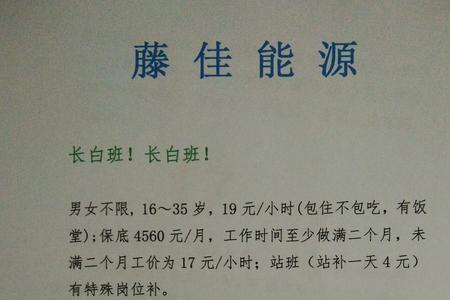 藤佳能源
长白班！长白班！
男女不限，16～35岁，19元/小时(包住不包吃，有饭
堂);保底4560元/月，工作时间至少做满二个月，未
满二个月工价为17元/小时；站班（站补一天4元）
有特殊岗位补。